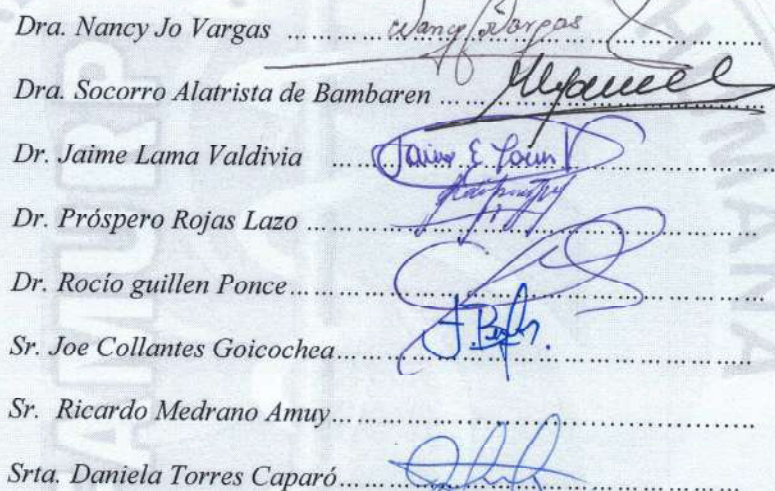 Dra. Nancy Jo Vargas .................... Nancy Jo Vargas
Dra. Socorro Alatrista de Bambaren ....................
Dr. Jaime Lama Valdivia .................... Jaime E Lama V
Dr. Próspero Rojas Lazo ....................
Dr. Rocío guillen Ponce....................
Sr. Joe Collantes Goicochea....................
Sr. Ricardo Medrano Amuy....................
Srta. Daniela Torres Caparó....................
FAMURP
HUMANA